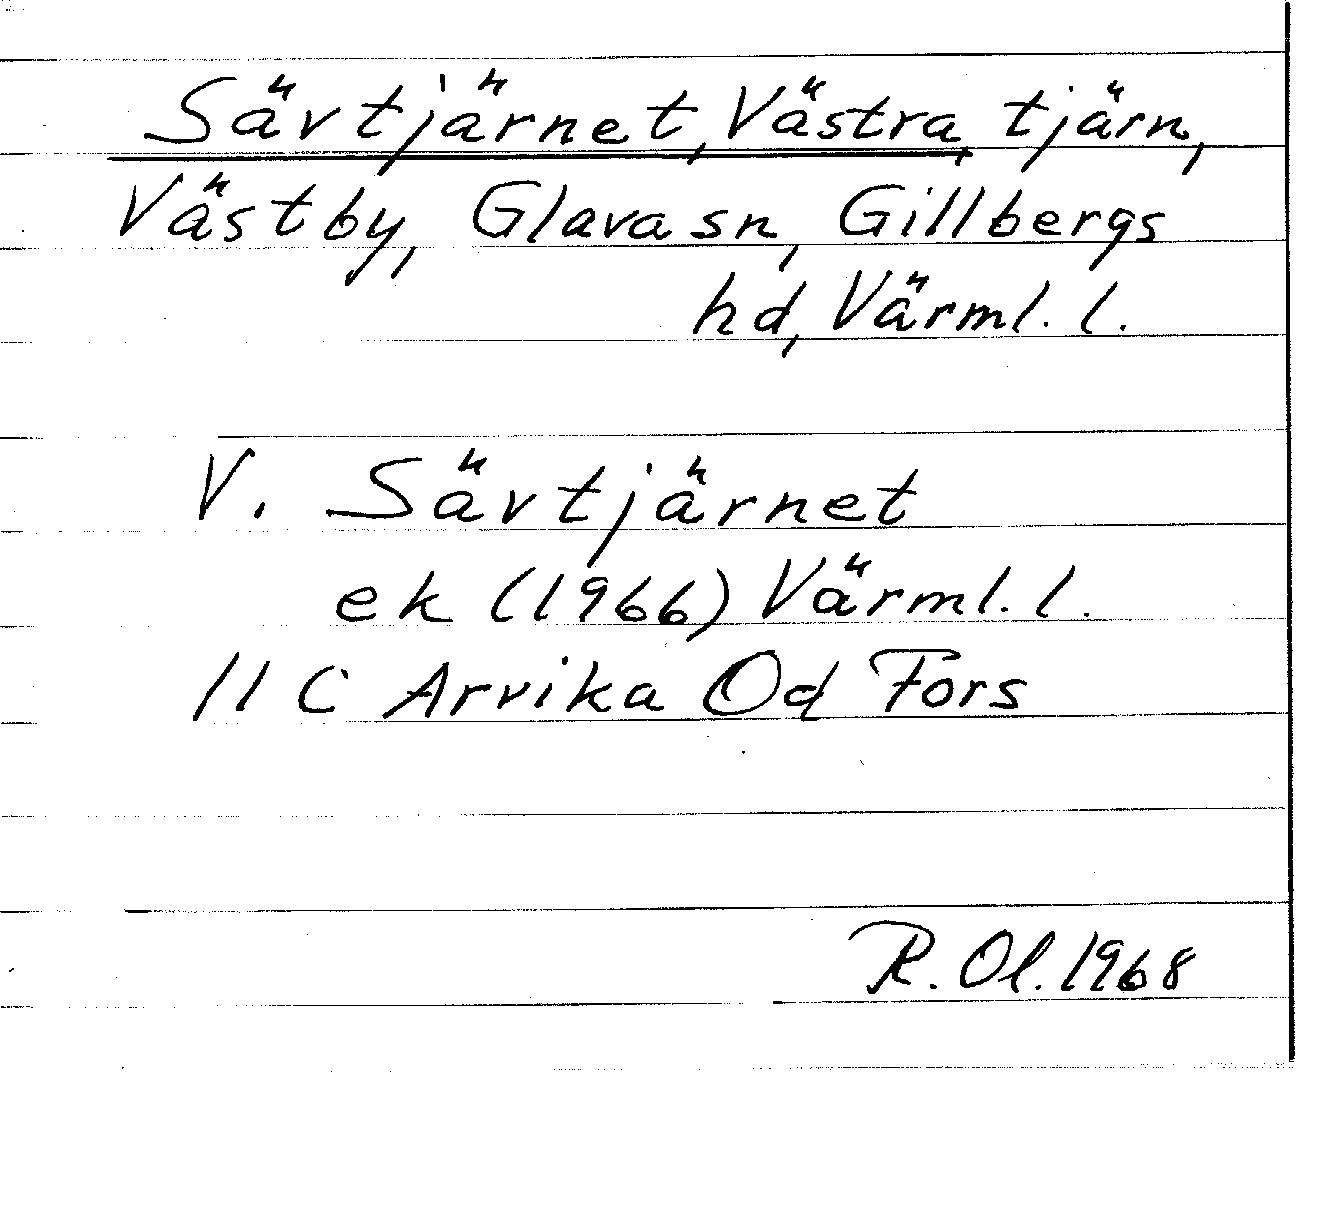 Sävtjärnet, Västra, tjärn,
Västby, Glava sn, Gillbergs
hd, Värml. l.
V. Sävtjärnet
ek (1966) Värml. l.
11 C Arvika Od Fors
R. Ol. 1968